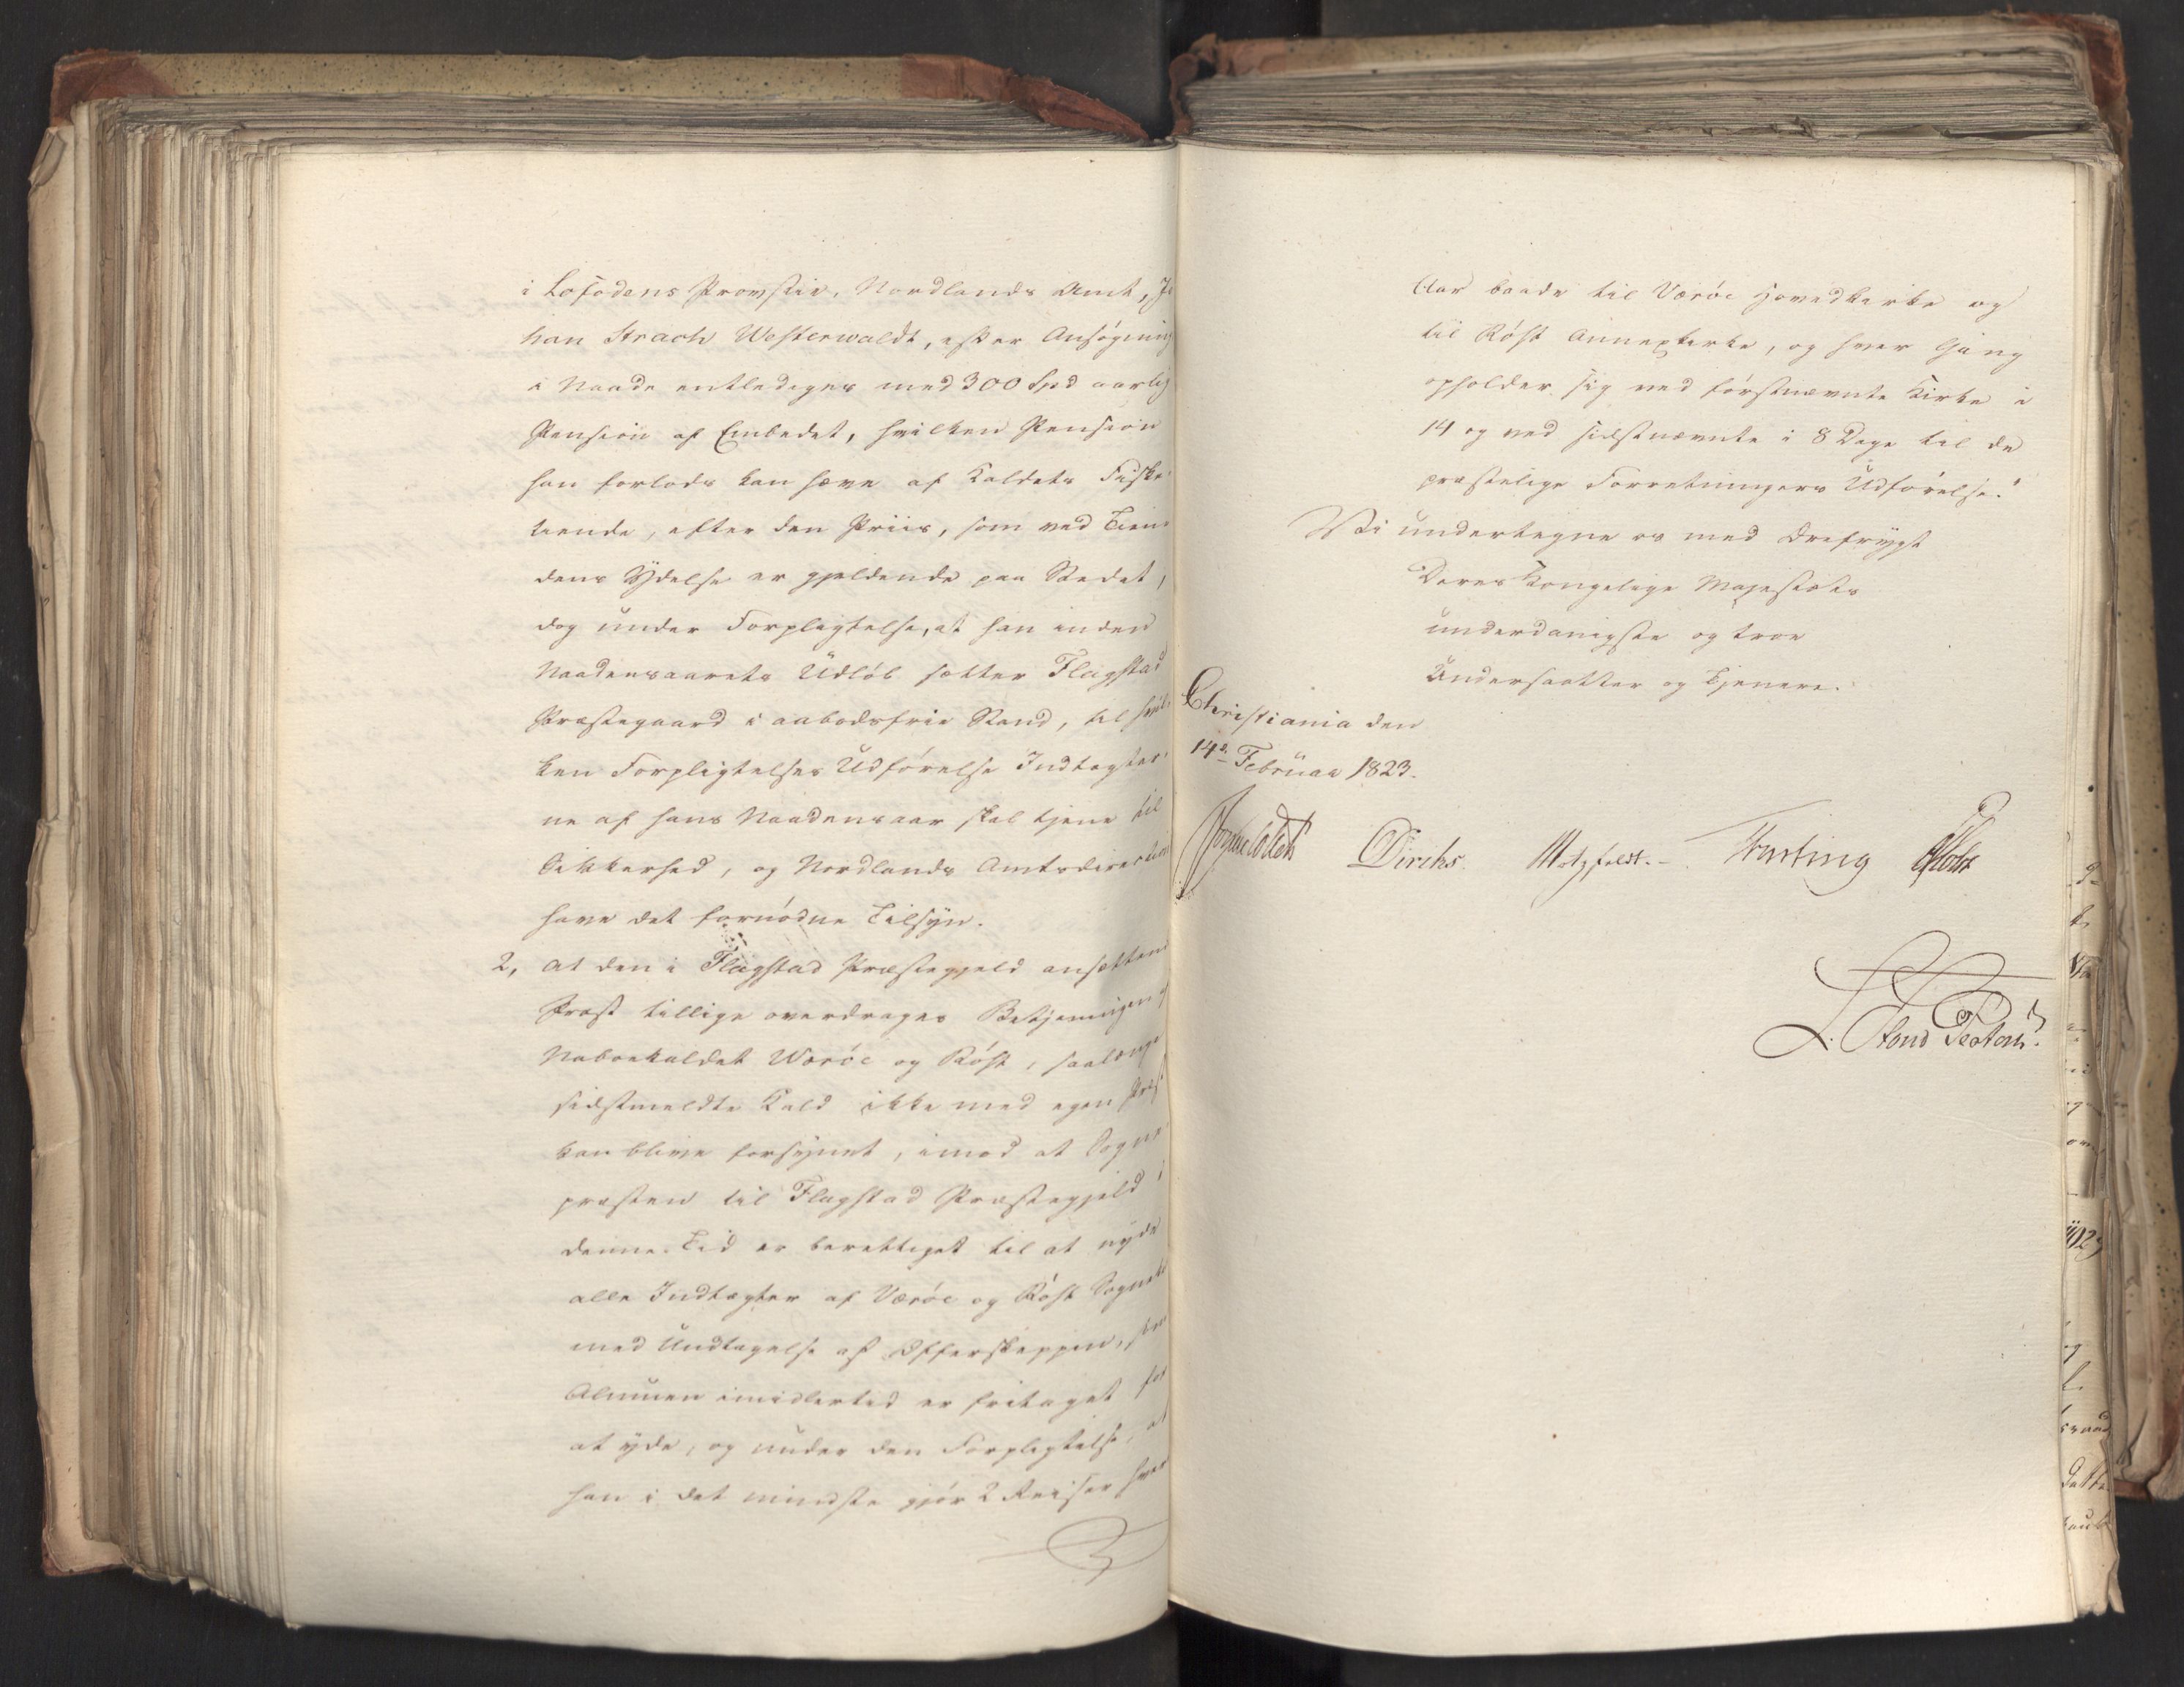 i Lofodens Provstie, Nordlands Amt, Jo
han Strach Westerwaldt, efter Ansøgning
i Naade entlediges med 300 Spd aarlig
Pension af Embedet, hvilken Pension
han forlods kan hæve af Kaldets Fiske-
tiende, efter den Priis, som ved Tien
dens Ydelse er gjeldende paa Stedet,
dog under Forpligtelse, at han inden
Naadensaarets Udløb sætter Flagstad
Præstegaard i aabodsfrie Stand, til hvil-
ken Forpligtelses Udførelse Indtægter-
ne af hans Naadensaar skal tjene til
Sikkerhed, og Nordlands Amtsdirection
have det fornødne Tilsyn.
2, at den i Flagstad Præstegjeld ansættende
Præst tillige overdrages Betjeningen af
Naboekaldet Værøe og Røst, saalænge
sidstmeldte Kald ikke med egen Præst
kan blive forsynet, imod at Sogne-
præsten til Flagstad Præstegjeld i
denne Tid er berettiget til at nyde
alle Indtægter af Værøe og Røst Sogne
med Undtagelse af Offerskeppen, som
Almuen imidlertid er fritaget for
at yde, og under den Forpligtelse, at
han i det mindste gjør 2 Reiser hver
Aar baade til Værøe Hovedkirke og
til Røst Annexkirke, og hver Gang
opholder sig ved førstnævnte Kirke i
14 og ved sidstnævnte i 8 Dage til de
præstelige Forretningers Udførelse."
Vi undertegne os med Ærefrygt
Deres Kongelige Majestæts
underdanigste og troe
Undersaatter og Tjenere.
Christiania den
14d. Februar 1823.
Diriks. Motzfeldt. Fasting Holst